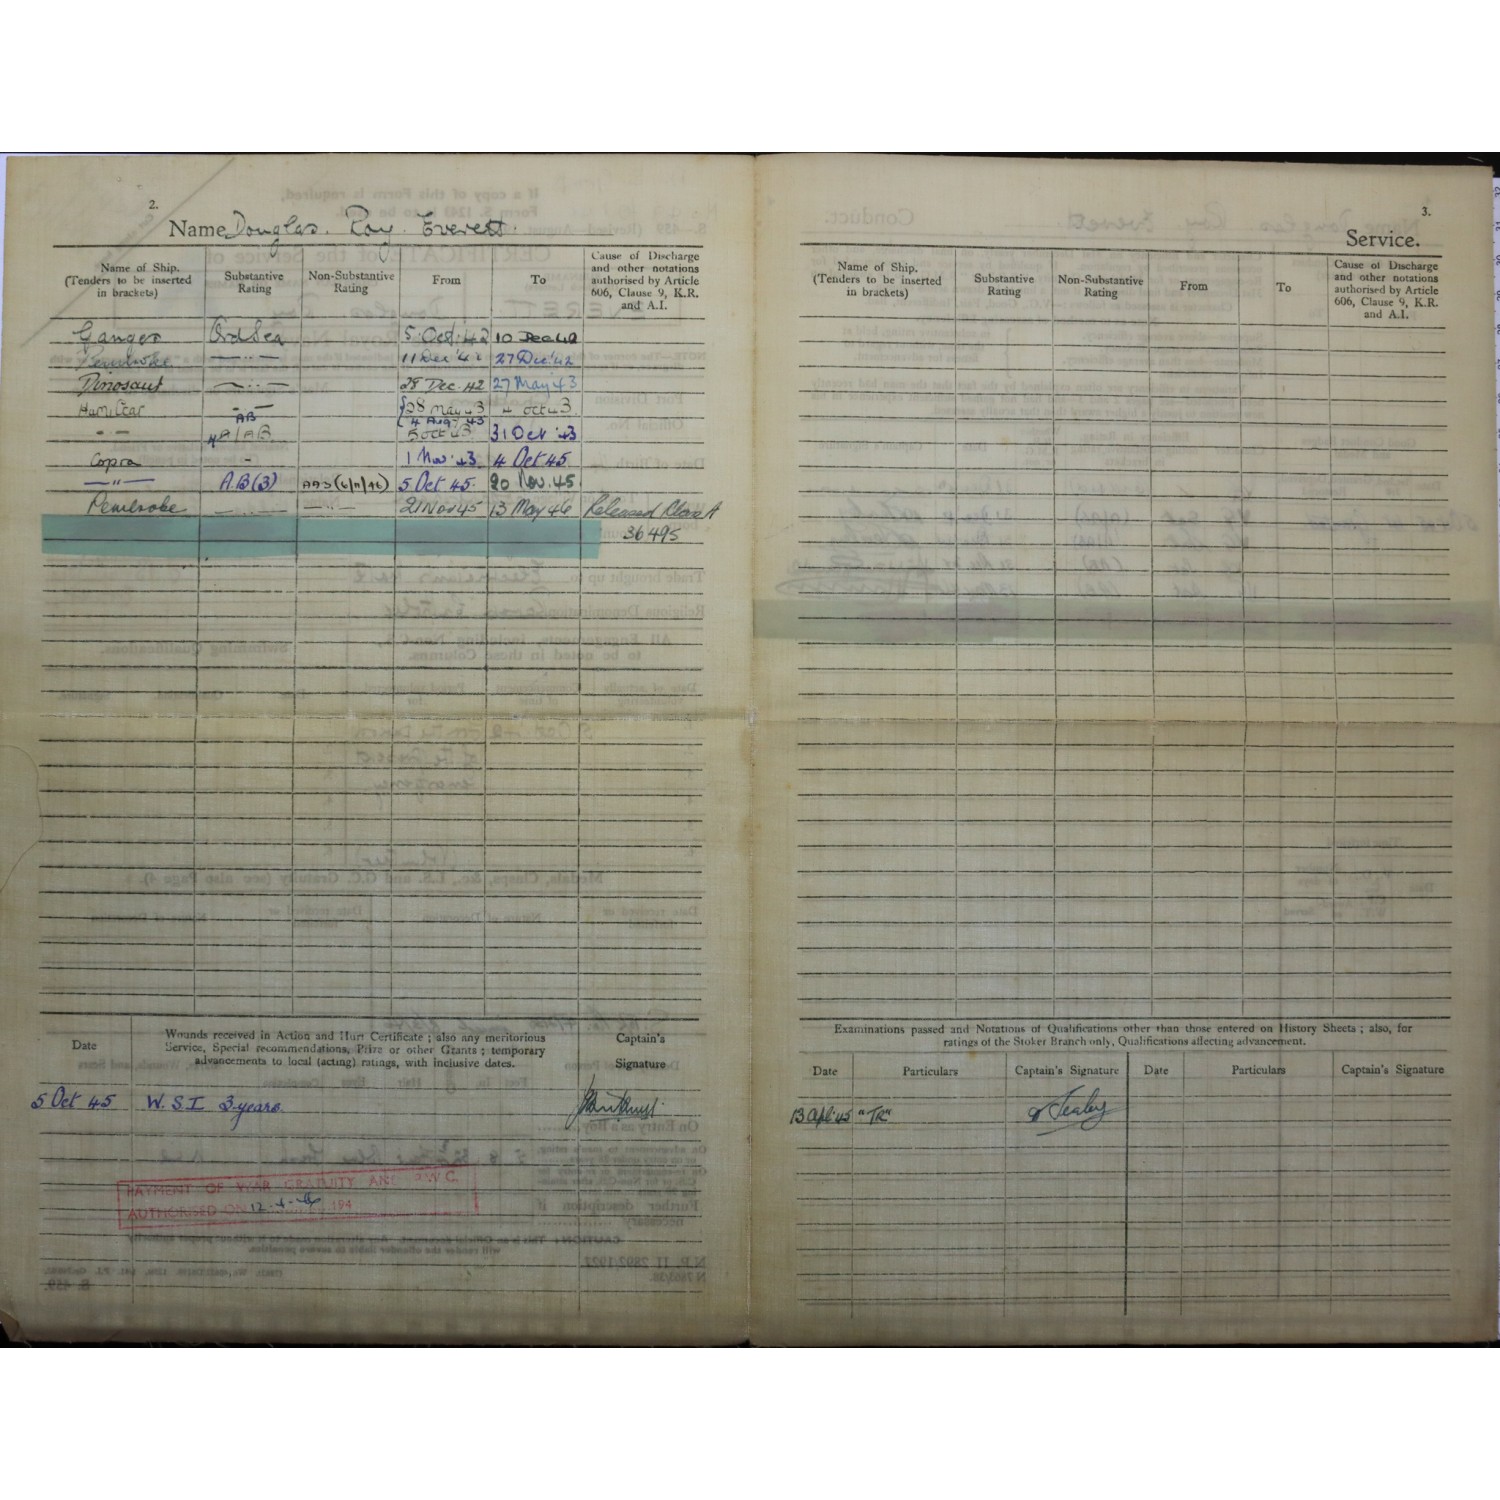 2.
Name Douglas. Roy. Everett.
Name of Ship. (Tenders to be inserted in brackets)
Substantive Rating
Non-Substantive Rating
From
To
Cause of Discharge and other notations authorised by Article 606, Clause 9, K.R. and A.I.
Ganges Ord Sea 5 Oct. 42 10 Dec 42
Pembroke —..— 11 Dec '42 27 Dec. '42
Dinosaur —..— 28 Dec. 42 27 May '43
Hamilcar —..— 28 May 43 4 Oct 43
AB 4 Aug. 43
-..- A/AB 5 Oct 43 31 Oct '43
Copra - 1 Nov. 43 4 Oct 45
—"— A.B (3) 5 Oct 45. 20 Nov. 45
Pembroke —..— —..— 21 Nov 45 13 May 46 Released Class A
36495
Date
Wounds received in Action and Hurt Certificate ; also any meritorious
Service, Special recommendations, Prize or other Grants ; temporary
advancements to local (acting) ratings, with inclusive dates.
Captain's
Signature
5 Oct 45 W.S.I 3 years.
PAYMENT OF WAR GRATUITY AND P.W.C.
AUTHORISED ON 194
3.
Service.
Name of Ship. (Tenders to be inserted in brackets)
Substantive Rating
Non-Substantive Rating
From
To
Cause of Discharge and other notations authorised by Article 606, Clause 9, K.R. and A.I.
Examinations passed and Notations of Qualifications other than those entered on History Sheets ; also, for
ratings of the Stoker Branch only, Qualifications affecting advancement.
Date Particulars Captain's Signature Date Particulars Captain's Signature
13 Apl. 45 "TR"